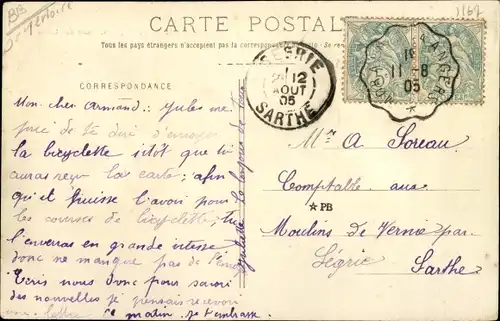 CARTE POSTALE
Tous les pays étrangers n'acceptent pas la correspondance
CORRESPONDANCE
SÉGRIE
12
AOUT
05
SARTHE
ANGERS
11 8
05
Mon cher Armand: Jules me
prie de te dire d'envoyer
la bicyclette sitôt que tu
auras reçu la carte; afin
qu'il puisse l'avoir pour
les courses de bicyclette; tu
l'enverras en grande vitesse
donc ne manque pas de
Ecris nous donc pour savoir
des nouvelles je pensais recevoir
une lettre ce matin je t'embrasse
Mr A Soreau
Comptable aux
★PB
Moulins de Vernie par
Ségrie
Sarthe